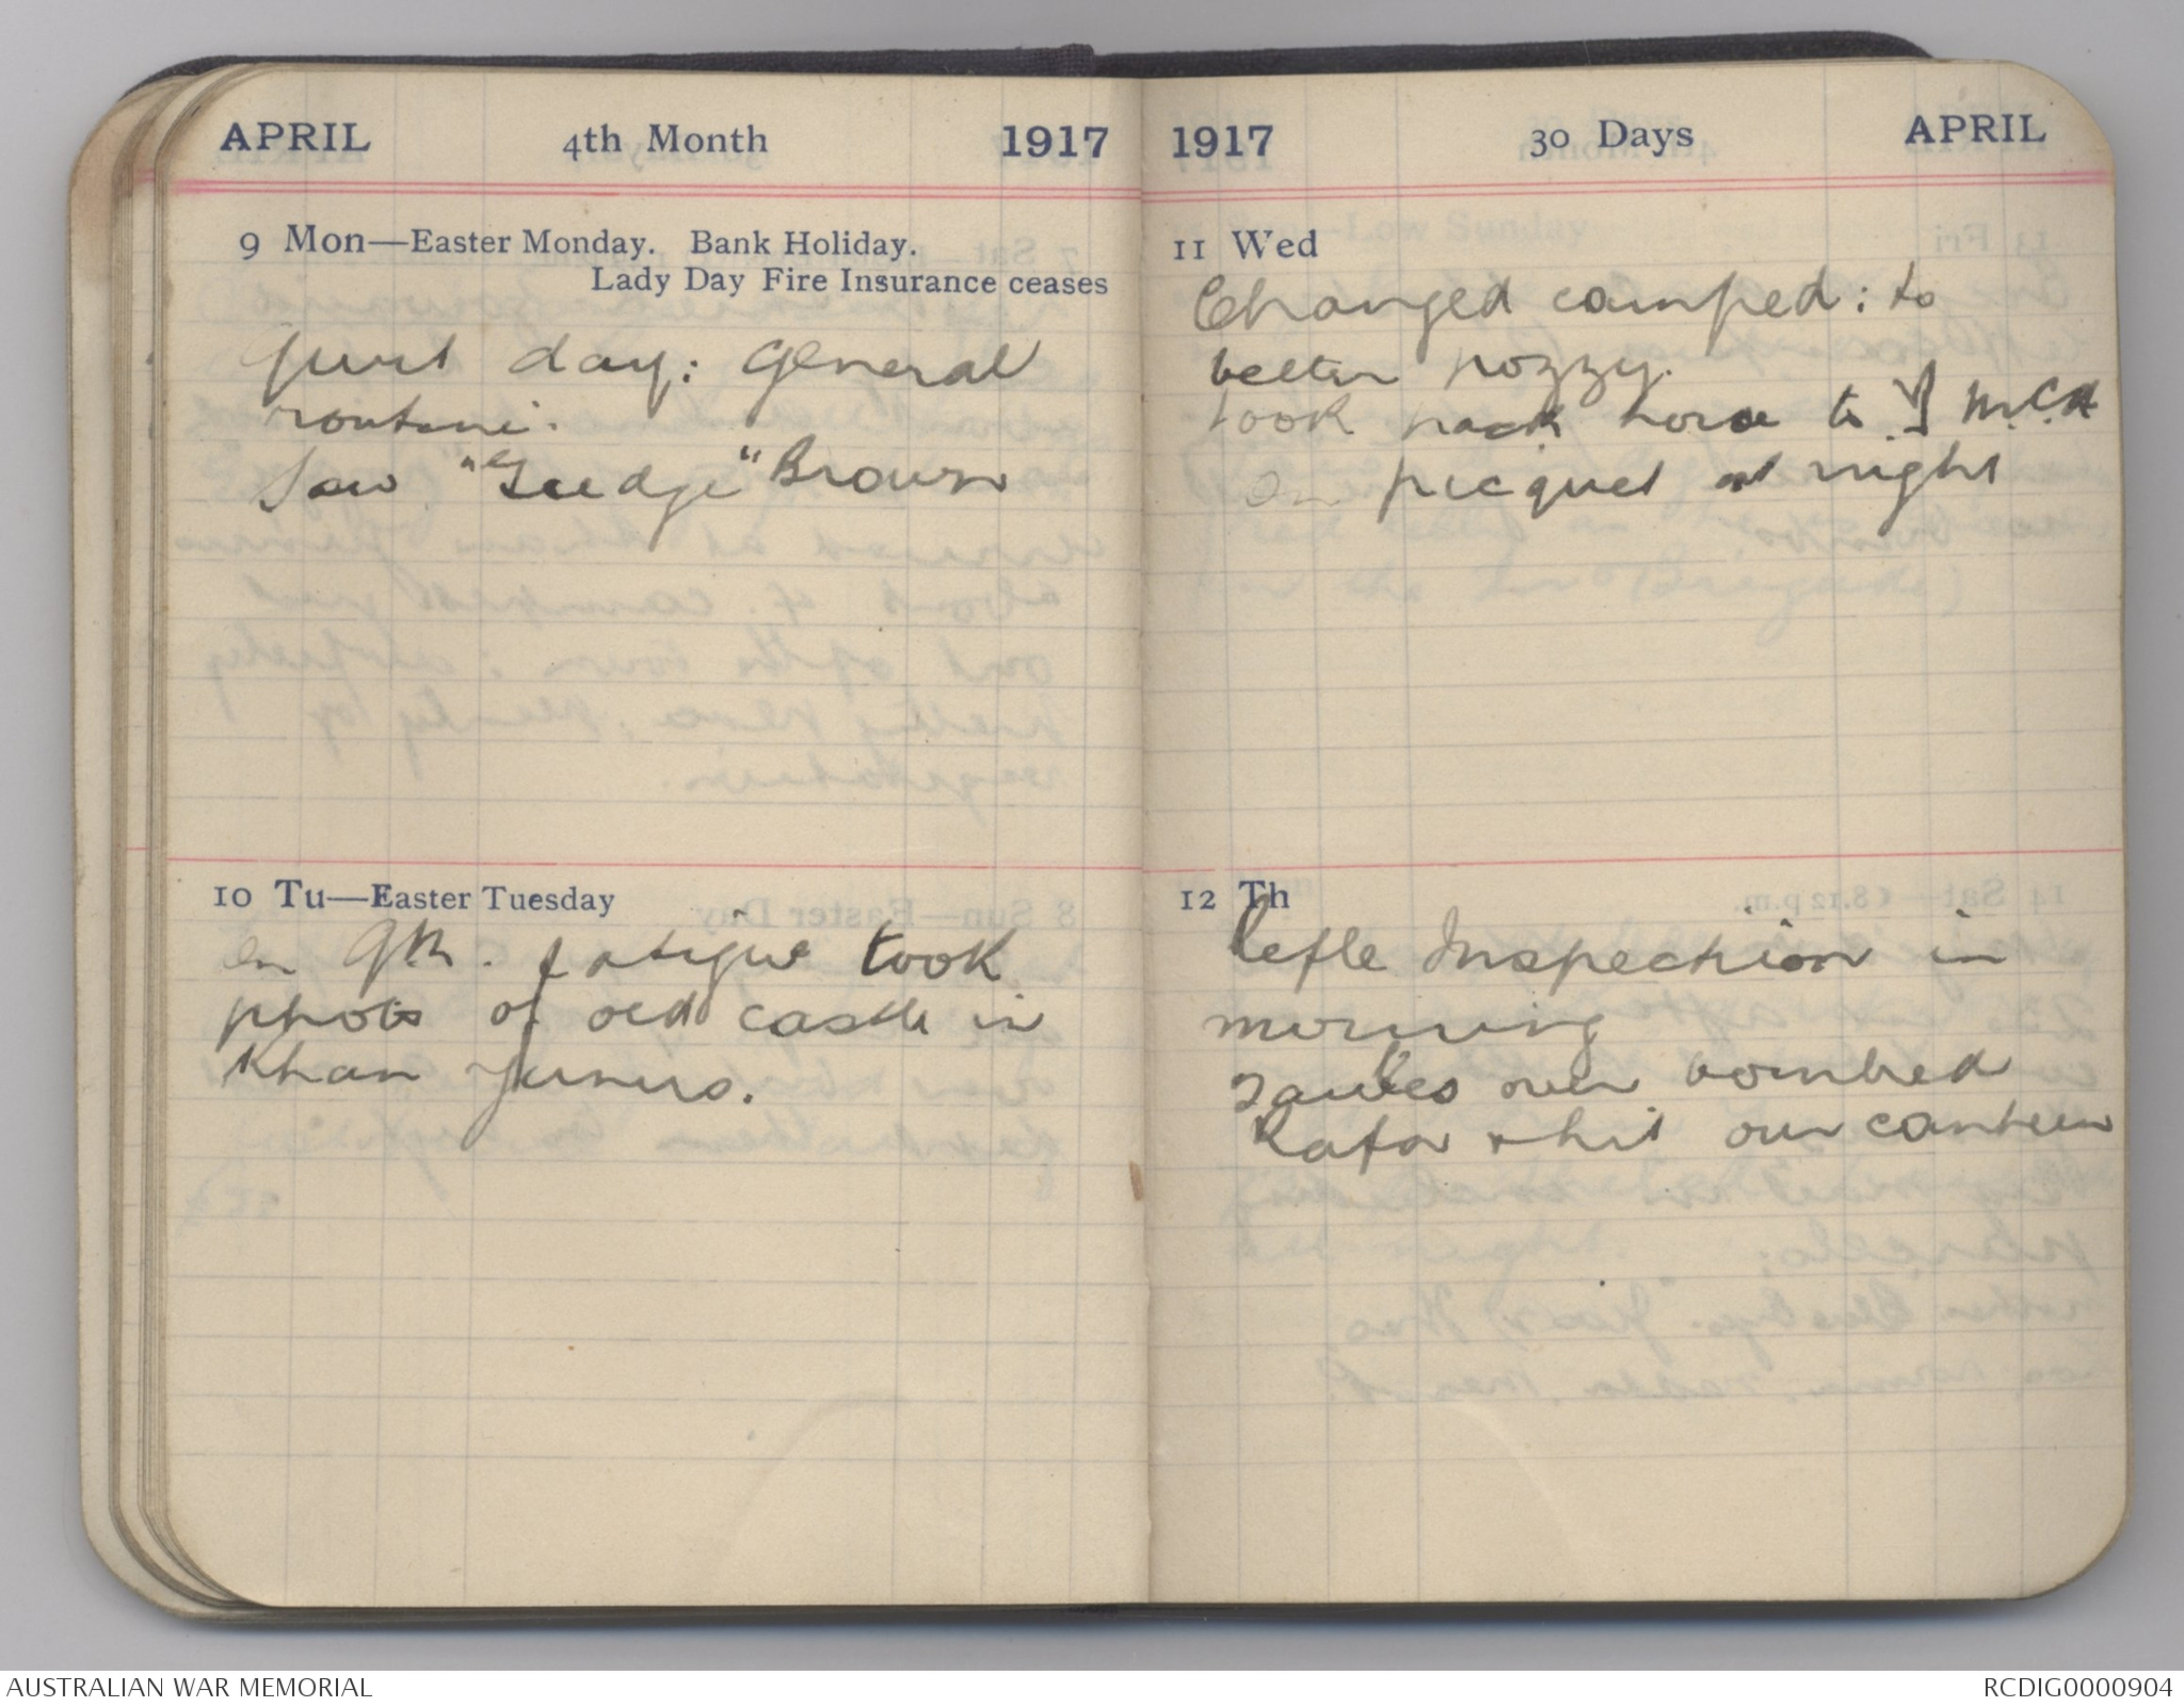 APRIL 4th Month 1917
9 Mon—Easter Monday. Bank Holiday.
Lady Day Fire Insurance ceases
Quiet day: General
routine.
Saw "Geedge" Brown
10 Tu—Easter Tuesday
On QM. fatigue took
photo of old castle in
Khan Yunus.
1917 30 Days APRIL
11 Wed
Changed camped: to
better pozzy.
took pack horse to Y M.C.A
On picquet at night
12 Th
Rifle Inspection in
morning
Taubes over bombed
Rafa & hit our canteen
AUSTRALIAN WAR MEMORIAL
RCDIG0000904